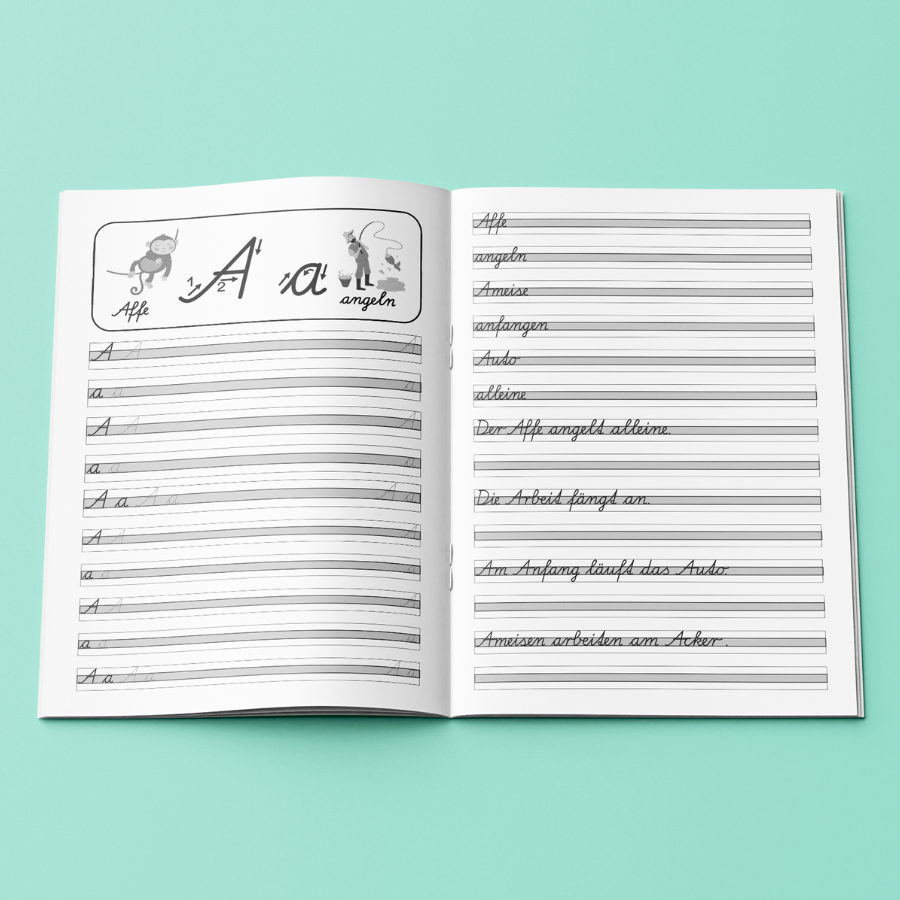 1 2 A a
Affe angeln
A A A
a a a
A A A
a a a
A a A a A a
A A A
a a a
A A A
a a a
A a A a A a
Affe
angeln
Ameise
anfangen
Auto
alleine
Der Affe angelt alleine.
Die Arbeit fängt an.
Am Anfang läuft das Auto.
Ameisen arbeiten am Acker.